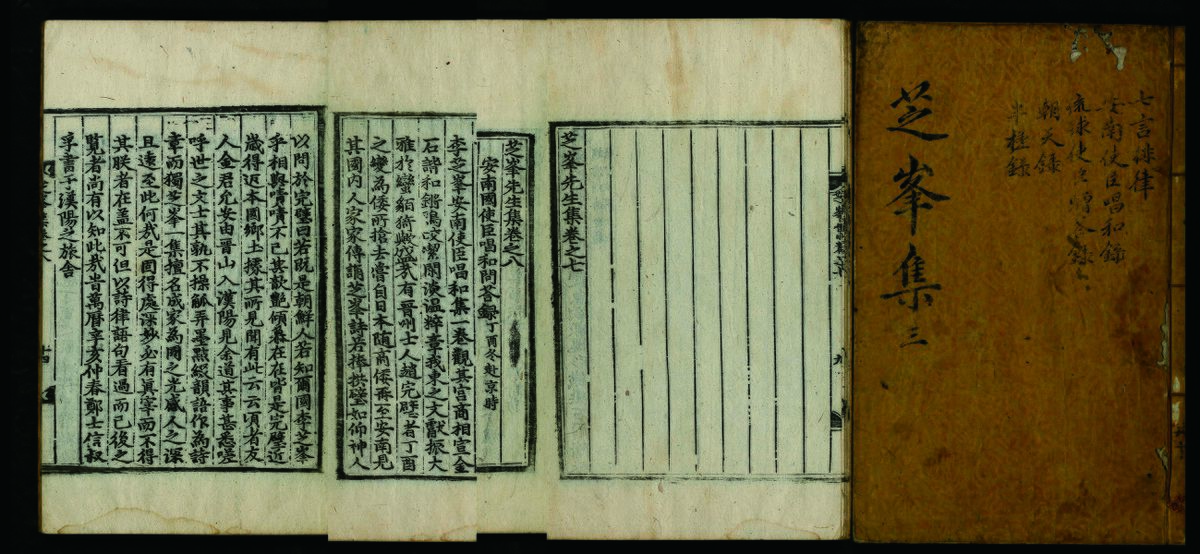 七言排律
安南使臣唱和錄
琉球使臣贈答錄
朝天錄
芝峯集 三
芝峯先生集卷之七
芝峯先生集卷之八
安南國使臣唱和問答錄 丁酉冬赴京時
李芝峯安南使臣唱和集一卷觀其宮商相宣金
石諧和鏘鳴皎潔閑淡溫粹章我東之文獻振大
雅於蠻貊猗歟盛哉有晉州士人趙完璧者丁酉
之變爲倭所搶去嘗自日本隨商倭再至安南見
其國內人家家傳誦芝峯詩若捧拱璧如仰神人
以問於完璧曰若旣是朝鮮人若知爾國李芝峯
乎相與嘖嘖不已其歆艶傾慕在在皆是完璧近
歲得返本國鄕土據其所見聞有此云云頃有友
人金君允安由晉山入漢陽見余道其事甚悉嗟
呼世之文士其孰不操觚弄墨點綴韻語作爲詩
章而獨芝峯一集擅名成家爲國之光感人之深
且遠至此何哉是固得處深妙必有眞宰而不得
其朕者在盖不可但以詩律語句看過而已後之
覽者尚有以知此哉旹萬曆辛亥仲春鄭士信叔
孚書于漢陽之旅舍